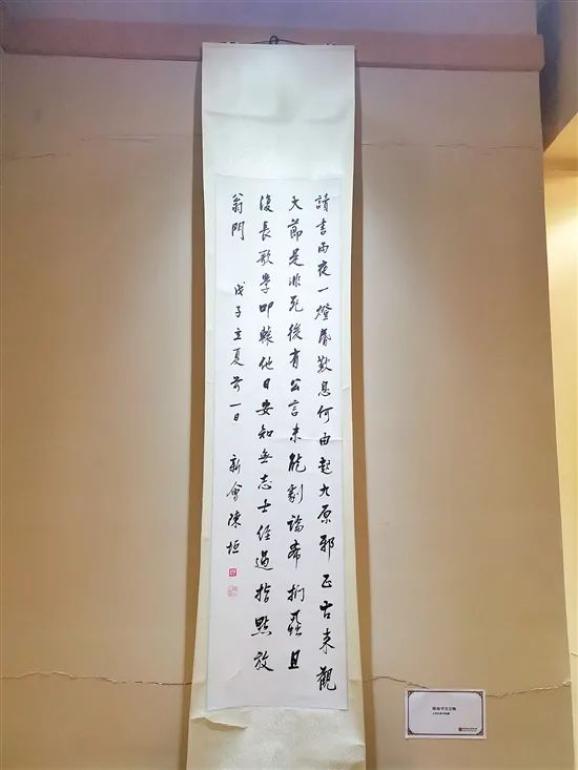 讀書雨夜一燈昏歎息何由起九原邪正古来觀
大節是非死後有公言未能劇論希捫蝨且
復長歌學叩轅他日安知無志士經過指點放
翁門 戊子立夏前一日 新會陳垣